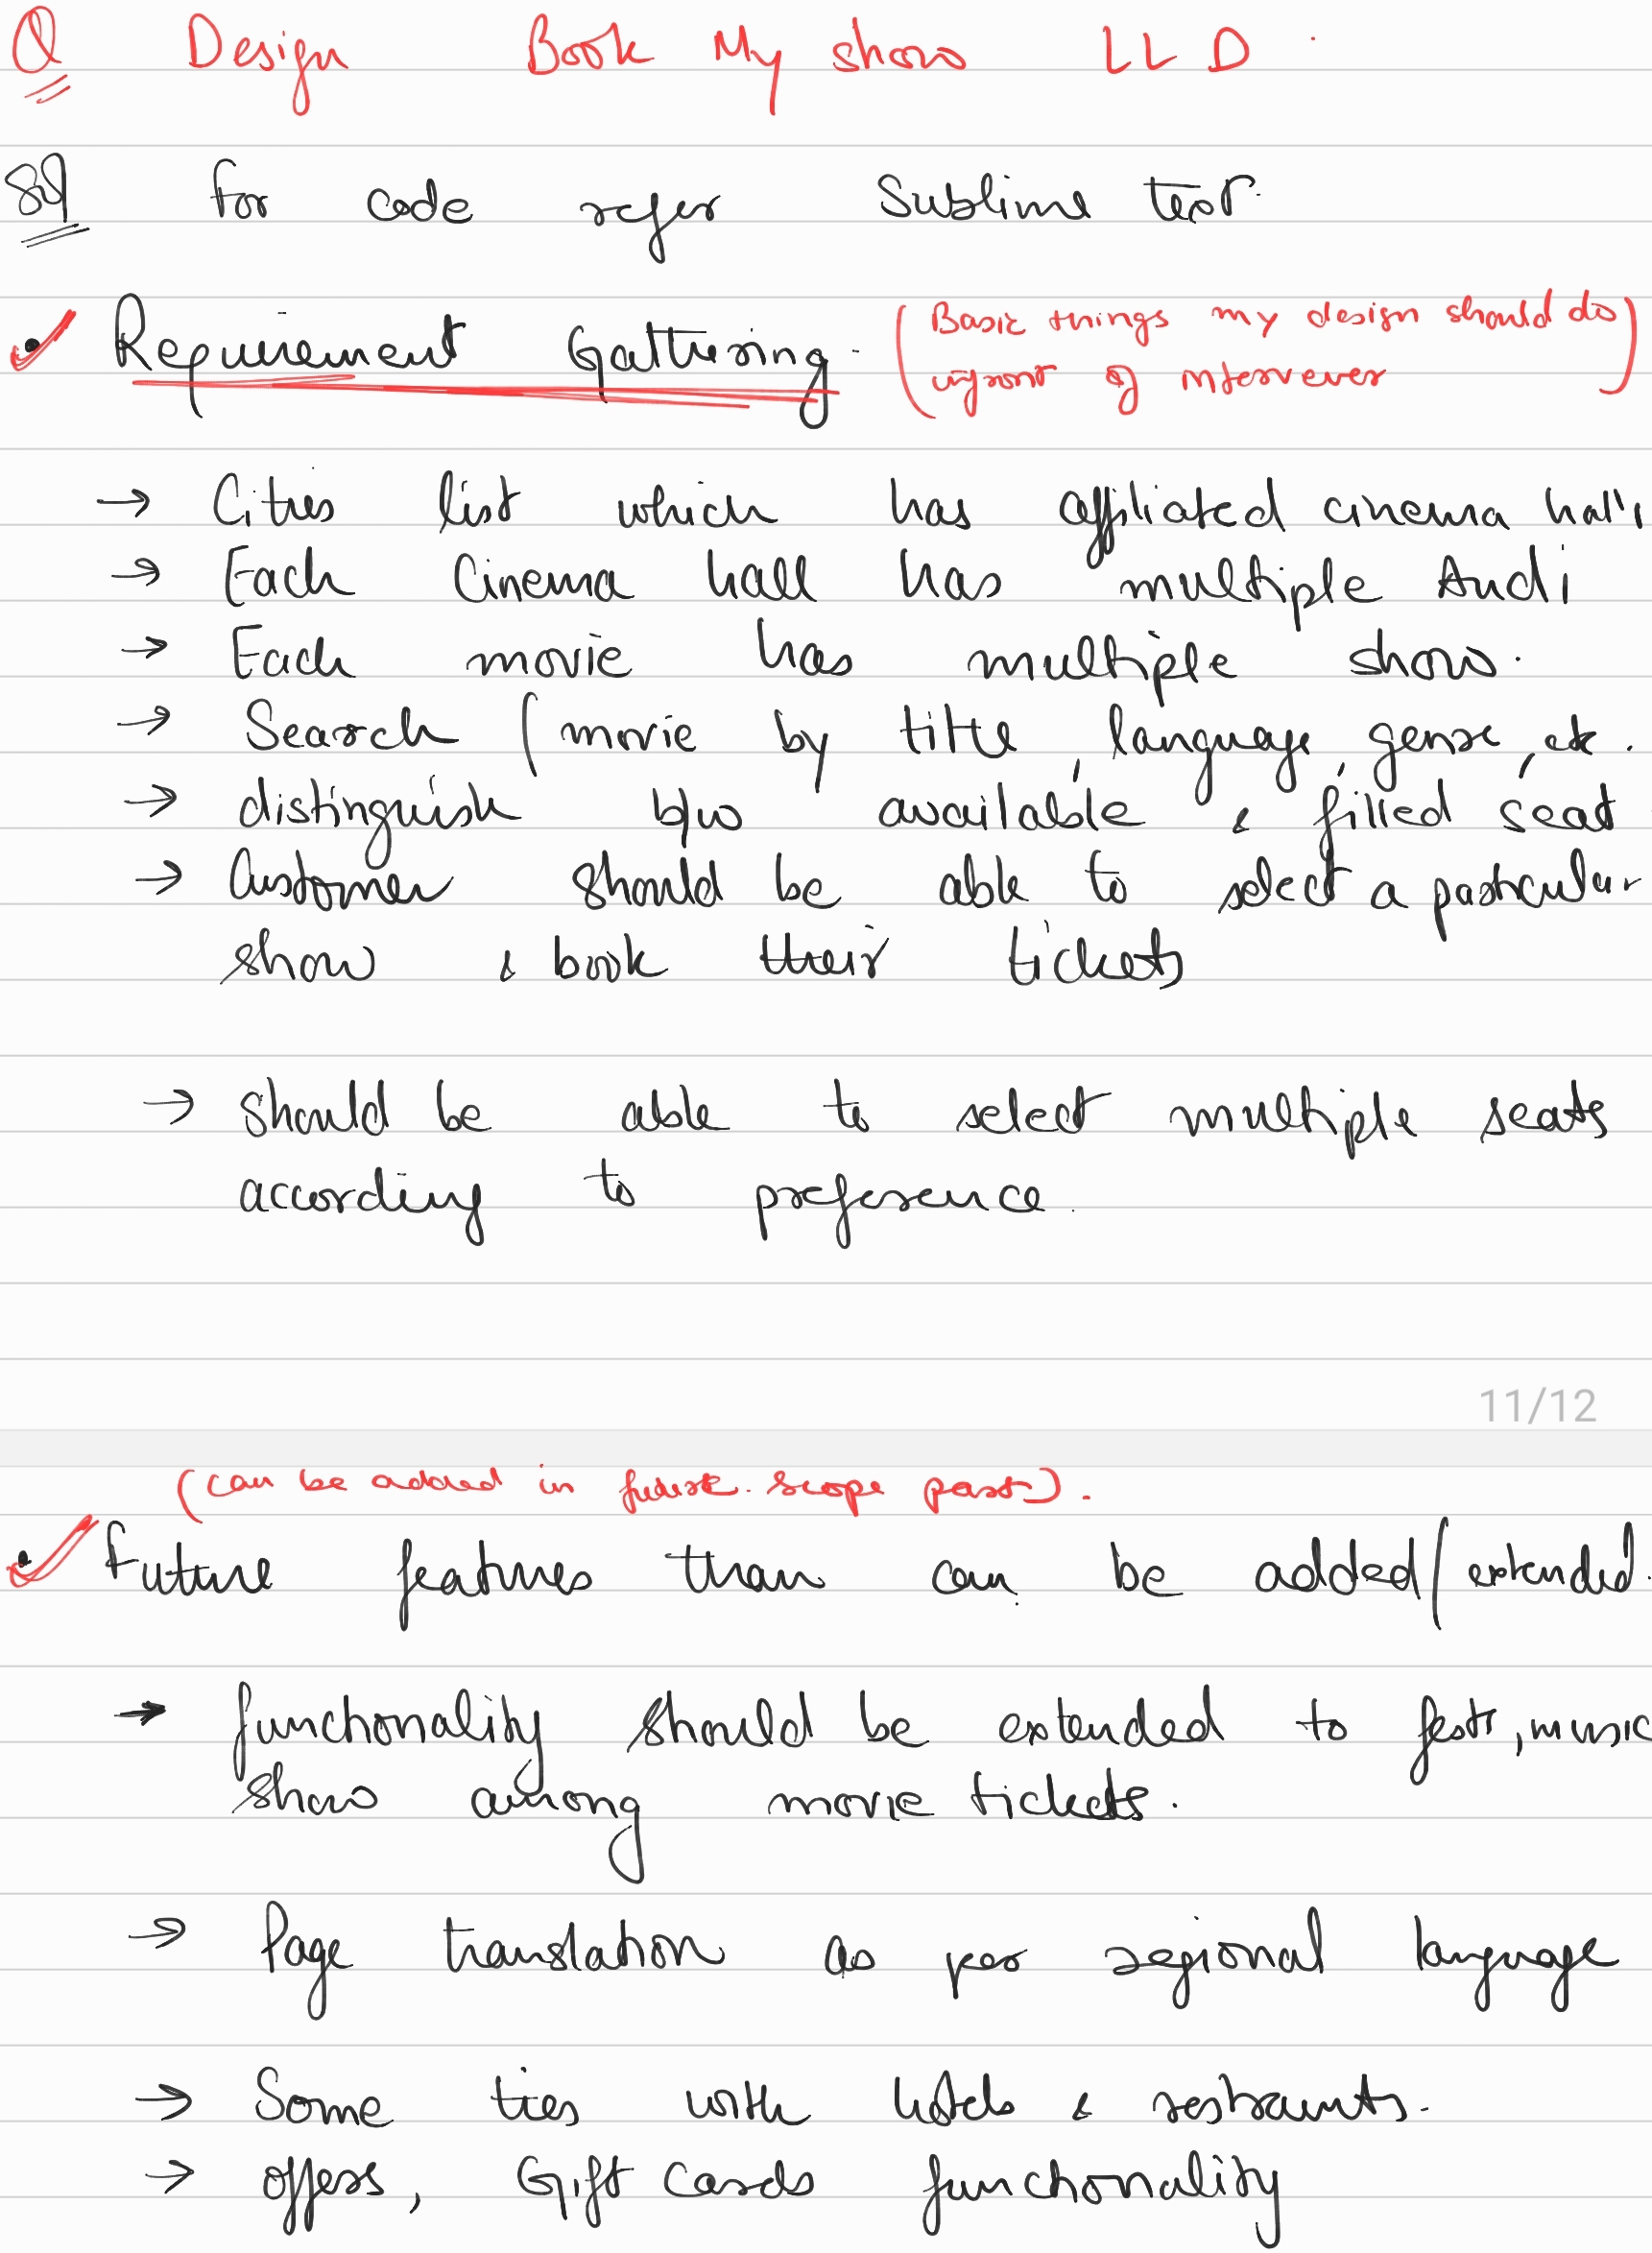 Q Design Book My show LLD.
Sol for code refer Sublime text.
Requirement Gathering. (Basic things my design should do
infront of interviewer)
→ Cities list which has affiliated cinema halls
→ Each Cinema hall has multiple Audi
→ Each movie has multiple shows.
→ Search (movie by title, language, genre, etc.
→ distinguish b/w available & filled seat
→ Customer should be able to select a particular
show & book their tickets
→ should be able to select multiple seats
according to preference.
11/12
(can be added in future scope part).
Future features than can be added/extended.
→ functionality should be extended to fests, music
shows among movie tickets.
→ Page translation as per regional language
→ Some ties with hotels & restraunts.
→ offers, Gift Cards functionality